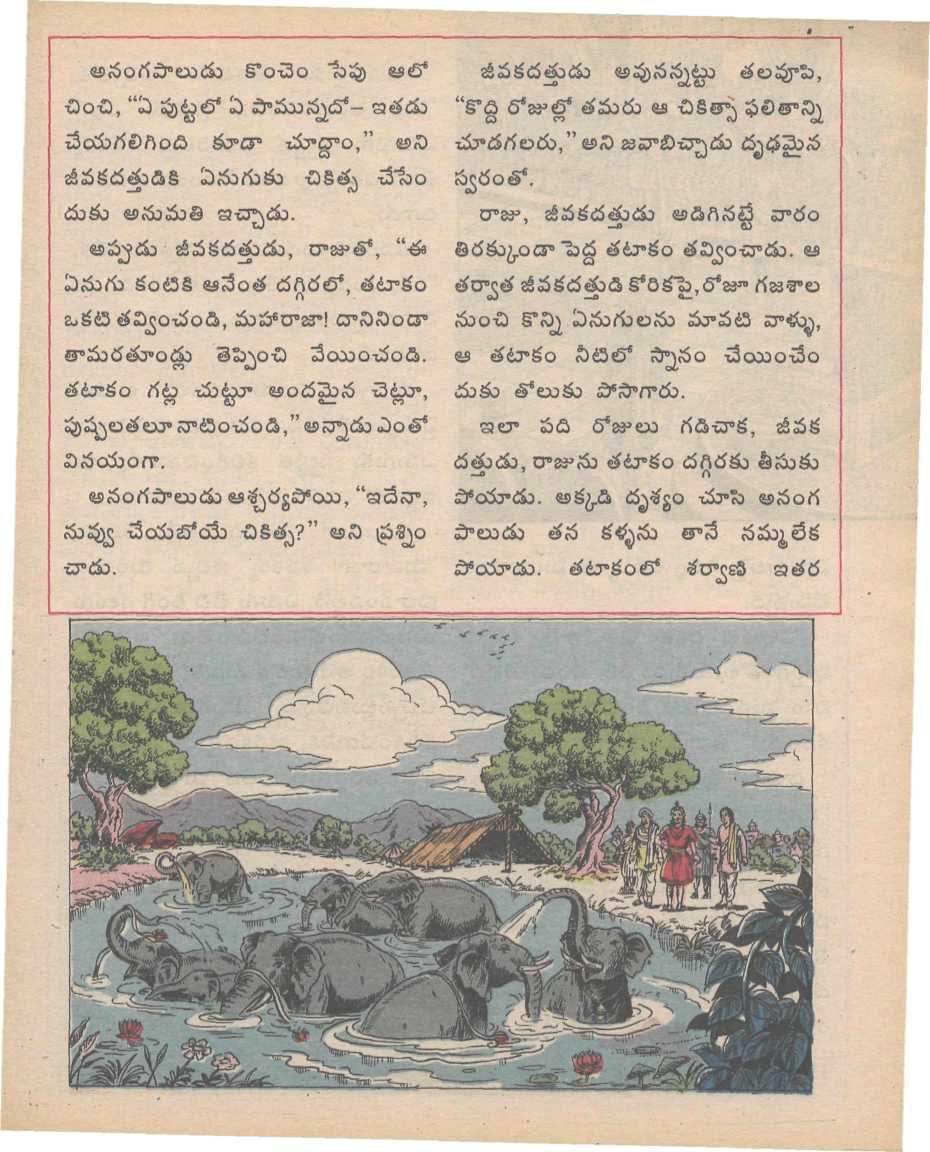 అనంగపాలుడు కొంచెం సేపు ఆలో
చించి, “ఏ పుట్టలో ఏ పామున్నదో— ఇతడు
చేయగలిగింది కూడా చూద్దాం,” అని
జీవకదత్తుడికి ఏనుగుకు చికిత్స చేసేం
దుకు అనుమతి ఇచ్చాడు.
అప్పుడు జీవకదత్తుడు, రాజుతో, “ఈ
ఏనుగు కంటికి ఆనేంత దగ్గిరలో, తటాకం
ఒకటి తవ్వించండి, మహారాజా! దానినిండా
తామరతూండ్లు తెప్పించి వేయించండి.
తటాకం గట్ల చుట్టూ అందమైన చెట్లూ,
పుష్పలతలూ నాటించండి,” అన్నాడు ఎంతో
వినయంగా.
అనంగపాలుడు ఆశ్చర్యపోయి, “ఇదేనా,
నువ్వు చేయబోయే చికిత్స?” అని ప్రశ్నిం
చాడు.
జీవకదత్తుడు అవునన్నట్టు తలవూపి,
“కొద్ది రోజుల్లో తమరు ఆ చికిత్సా ఫలితాన్ని
చూడగలరు,” అని జవాబిచ్చాడు దృఢమైన
స్వరంతో.
రాజు, జీవకదత్తుడు అడిగినట్టే వారం
తిరక్కుండా పెద్ద తటాకం తవ్వించాడు. ఆ
తర్వాత జీవకదత్తుడి కోరికపై, రోజూ గజశాల
నుంచి కొన్ని ఏనుగులను మావటి వాళ్ళు,
ఆ తటాకం నీటిలో స్నానం చేయించేం
దుకు తోలుకు పోసాగారు.
ఇలా పది రోజులు గడిచాక, జీవక
దత్తుడు, రాజును తటాకం దగ్గిరకు తీసుకు
పోయాడు. అక్కడి దృశ్యం చూసి అనంగ
పాలుడు తన కళ్ళను తానే నమ్మలేక
పోయాడు. తటాకంలో శర్వాణి ఇతర